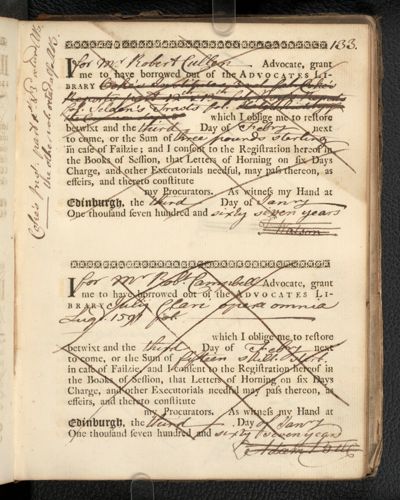 133.
I for Mr Robert Cullen Advocate, grant
me to have borrowed out of the ADVOCATES LI-
BRARY Coke's
Selden's Tracts fol.
which I oblige me to restore
betwixt and the third Day of Febry next
to come, or the Sum of three pounds sterling
in case of Failzie; and I consent to the Registration hereof in
the Books of Session, that Letters of Horning on six Days
Charge, and other Executorials needful may pass thereon, as
effeirs, and thereto constitute
my Procurators. As witness my Hand at
Edinburgh, the third Day of Janry
One thousand seven hundred and sixty seven years
J Watson
Coke's Inst. part
the other vol.
I for Mr Robt Campbell Advocate, grant
me to have borrowed out of the ADVOCATES LI-
BRARY Julii Clari opera omnia
Lugd 159 fol.
which I oblige me to restore
betwixt and the third Day of Febry next
to come, or the Sum of fifteen shill: sterl:
in case of Failzie, and I consent to the Registration hereof in
the Books of Session, that Letters of Horning on six Days
Charge, and other Executorials needful may pass thereon, as
effeirs, and thereto constitute
my Procurators. As witness my Hand at
Edinburgh, the third Day of Janry
One thousand seven hundred and sixty seven years
Adam